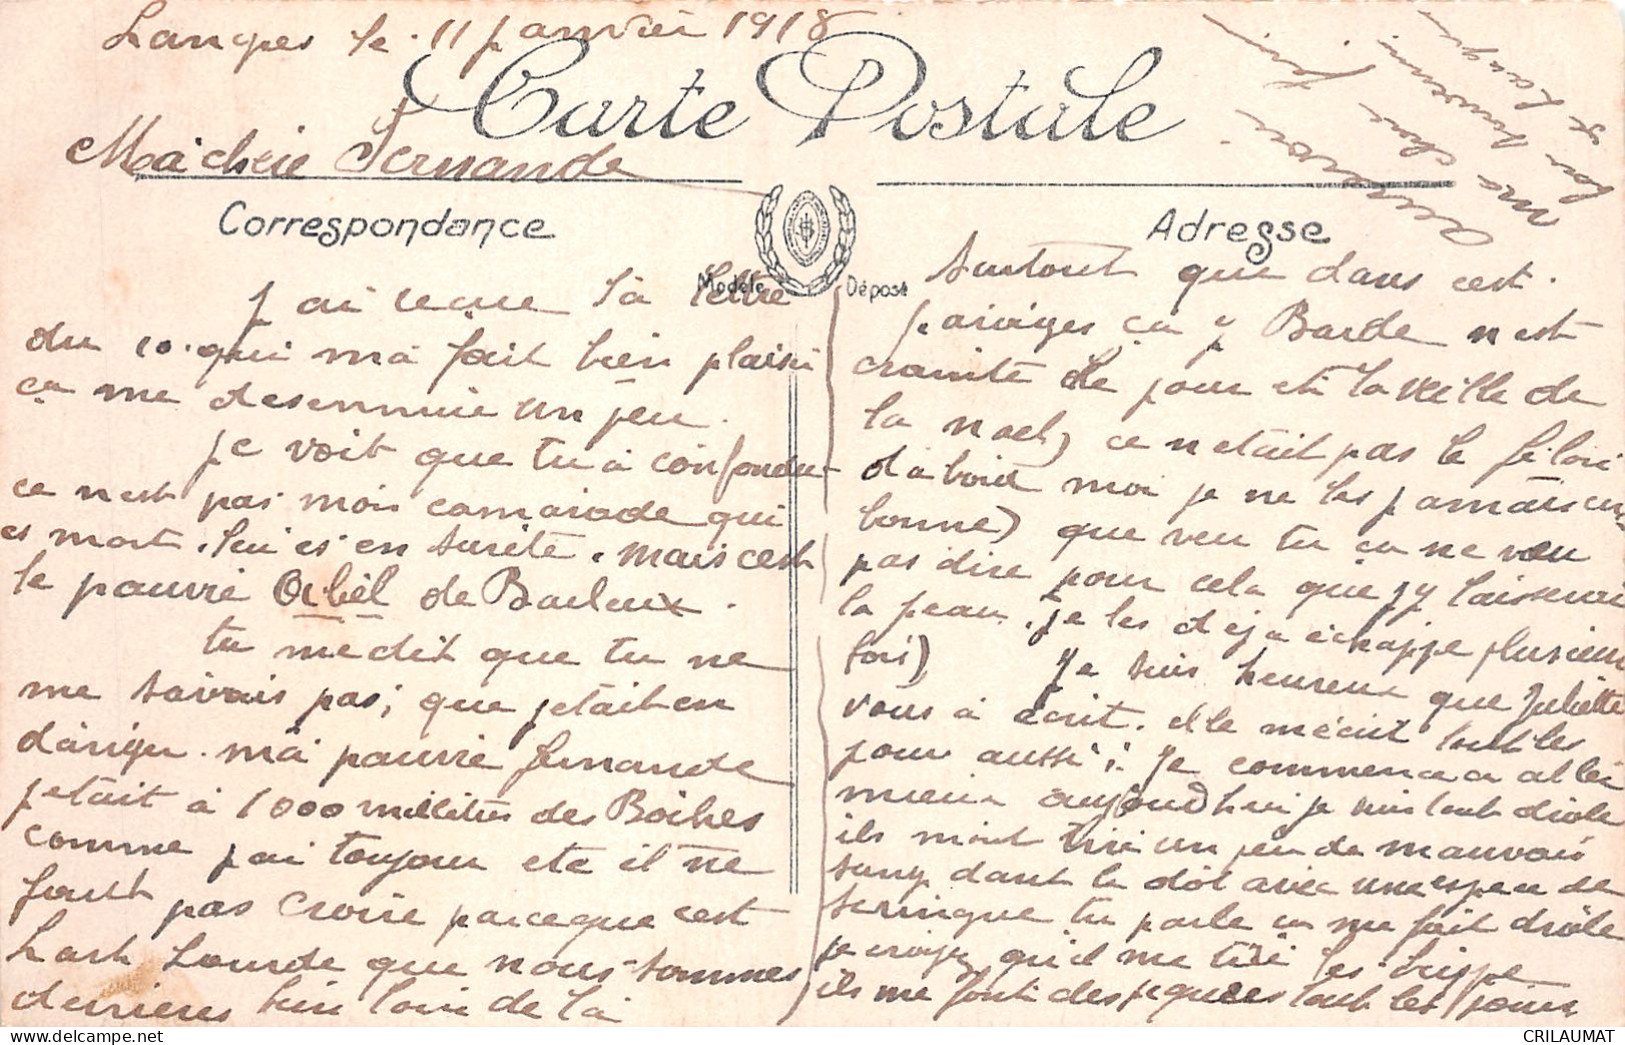 Langres le 11 janvier 1918
Carte Postale
Ma chère Fernande
Correspondance
Modèle Déposé
j ai reçue ta lettre
du 10. qui ma fait bien plaisir
ça me desennuie un peu.
je voit que tu a confondue
ce nest pas mon camarade qui
es mort. lui es en sureté. mais cest
le pauvre Orbel de Barleux.
tu me dit que tu ne
me savais pas; que jetait en
danger. ma pauvre fernande
jetait a 1000 millètres des Boches
comme jai toujour ete il ne
fout pas croire parceque cest
Lart Lourde que nous sommes
derrieres bien loin de la
Adresse
Surtout que dans cest.
parages ça y Barde nest
crainte de jour et la veille de
la noel) ce netait pas le filon
dabord moi je ne les jamais eu
bonne) que veu tu ça ne veu
pas dire pour cela que jy laisserai
la peau. je les deja échappe plusieur
fois) Je suis heureux que Juliette
vous a écrit. elle mécrit tout les
jour aussi; Je commence a aller
mieux aujourdhui je suis tout drole
ils mont tiré un peu de mauvais
sang dans le dot avec une espece de
seringue tu parle ça me fait drôle
je croyez qu'il me tiré les trippe
ils me font des piqures tout les jours
Aurevoir
ma chere
bon souvenir